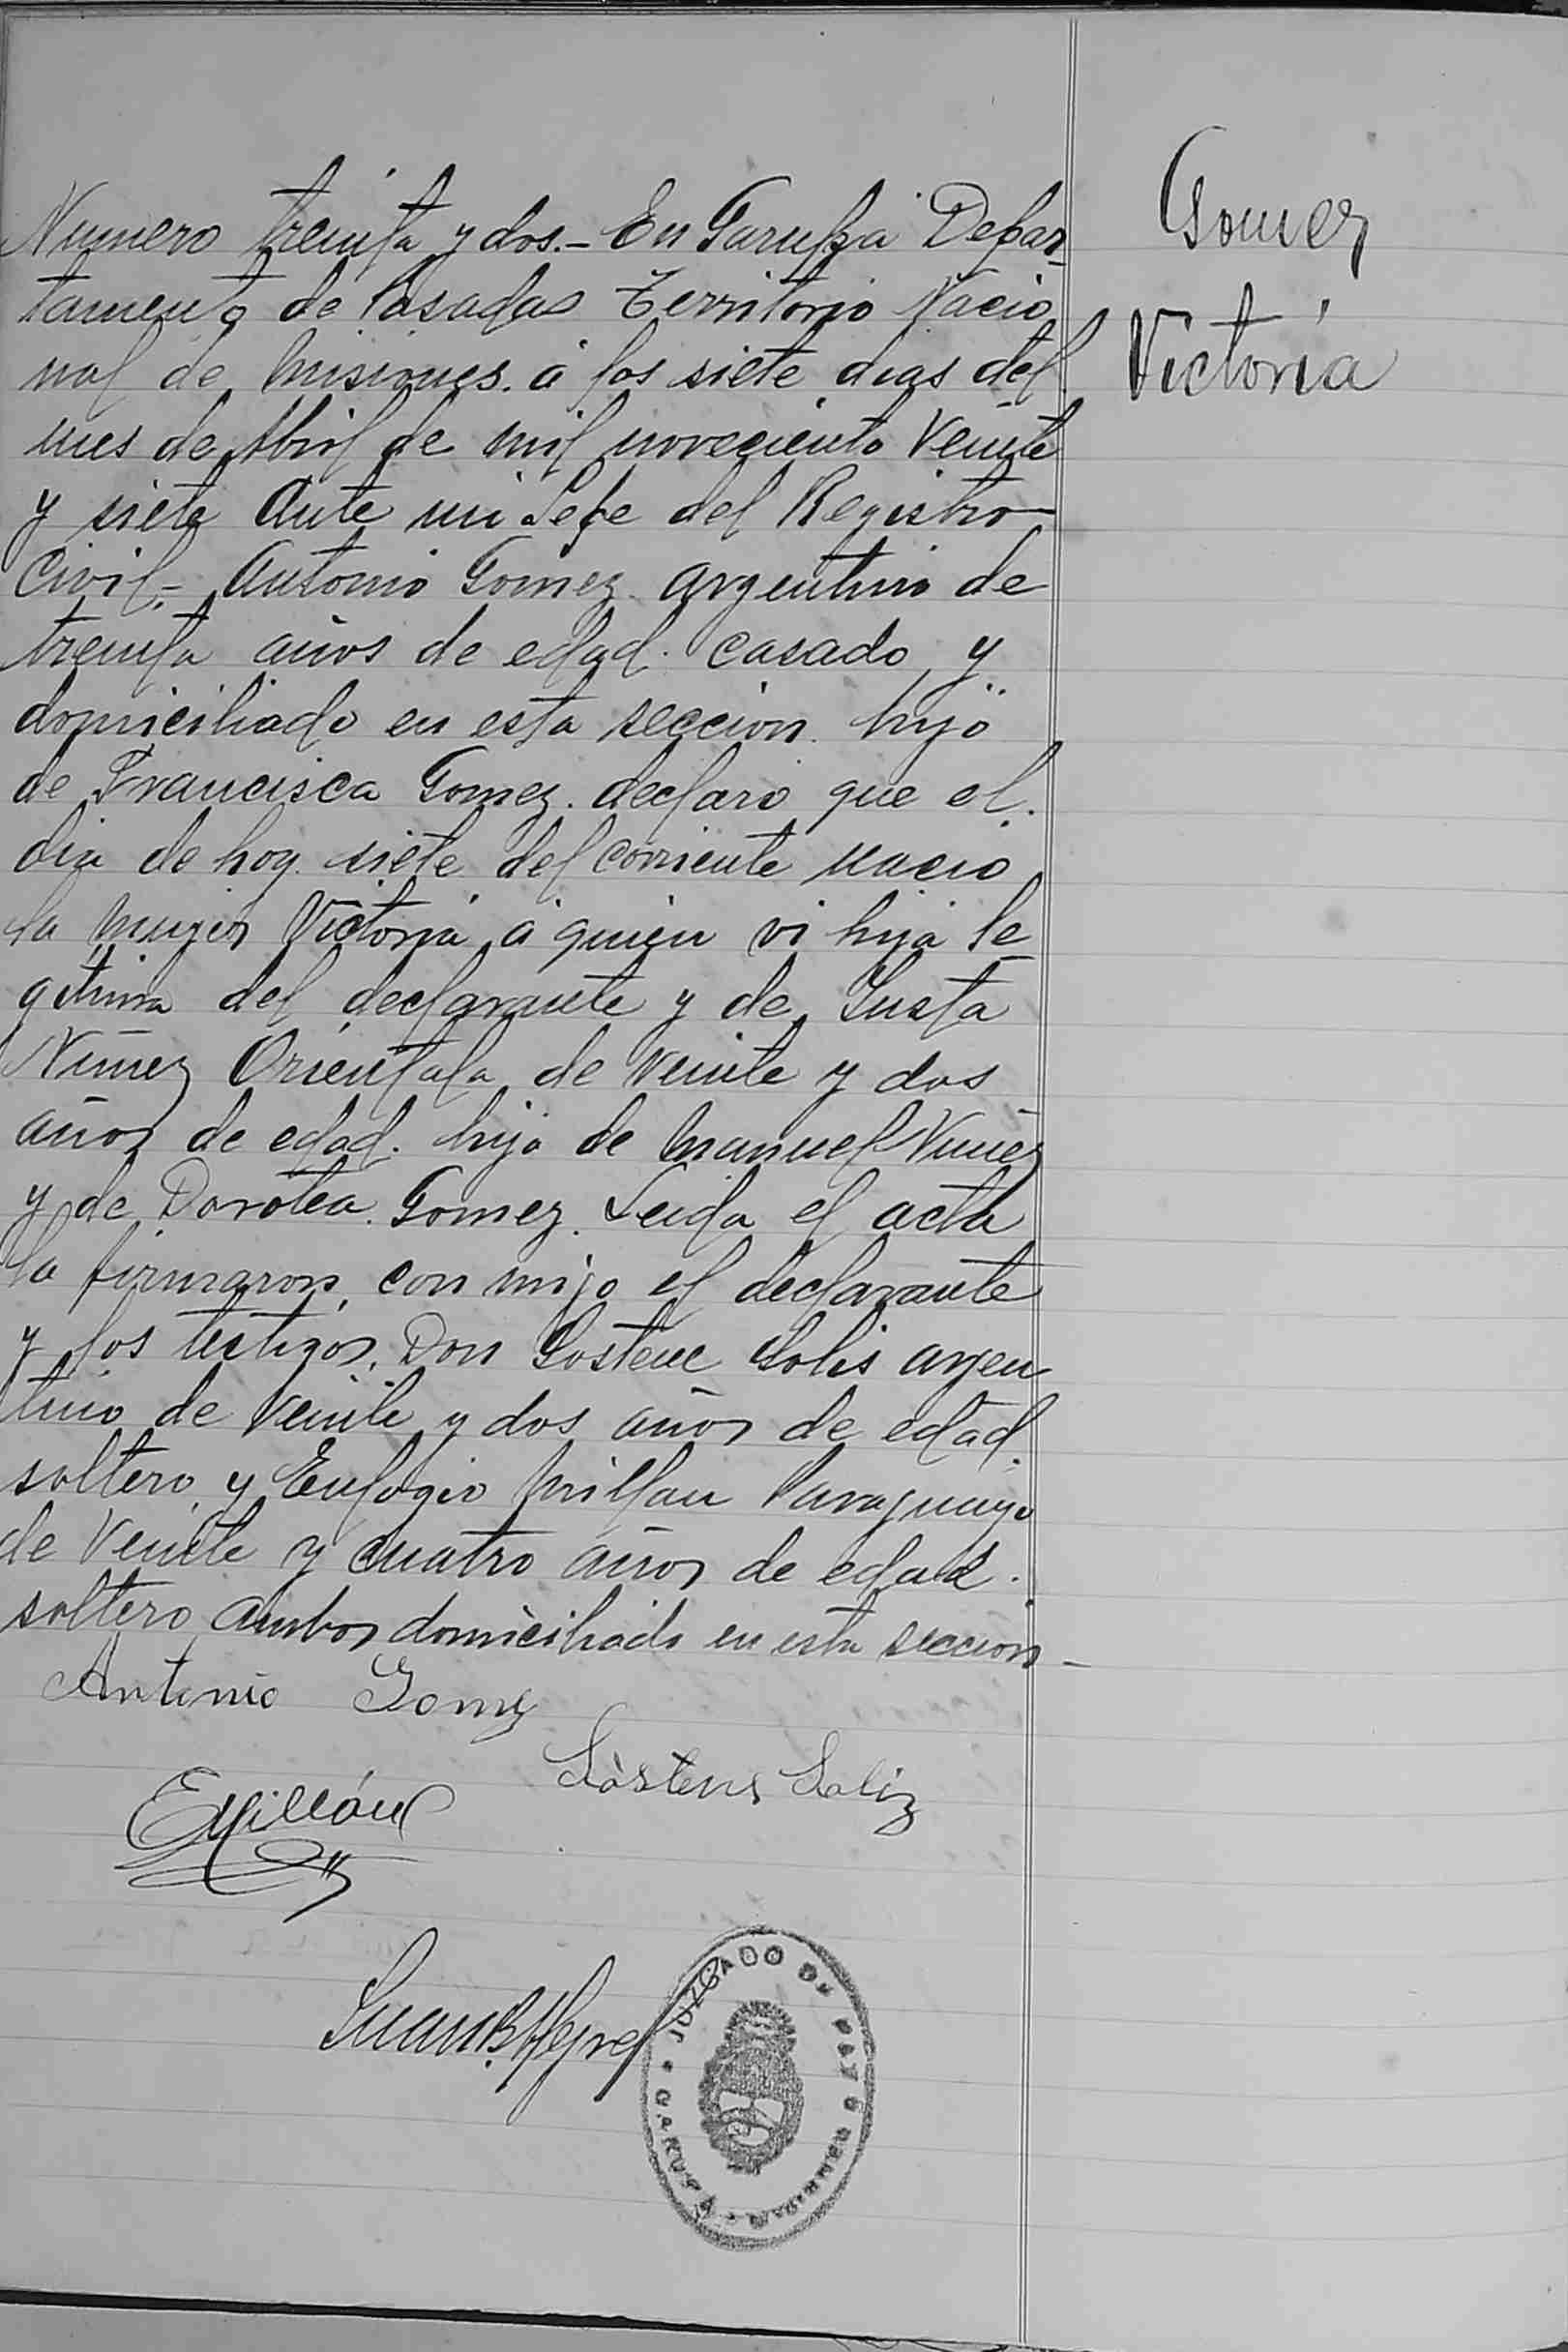 Numero treinta y dos.- En Garupa Depar-
tamento de Posadas Territorio Nacio
nal de Misiones. á los siete dias del
mes de Abril de mil noveciento veinte
y siete Ante mi Jefe del Registro
Civil,- Antonio Gomez argentino de
treinta años de edad. casado y
domiciliado en esta seccion hijo
de Francisca Gomez. declaro que el
dia de hoy siete del corriente nacio
la muger Victoria á quien vi hija le
gitima del declarante y de Justa
Nuñez Orientala de veinte y dos
años de edad. hija de Manuel Nuñez
y de Dorotea Gomez. Leida el acta
la firmaron, con migo el declarante
y los testigos, Don Sostene Solis argen
tino de veinte y dos años de edad.
soltero y Eulogio Millan Paraguayo
de Veinte y cuatro años de edad.
soltero ambos domiciliado en esta seccion-
Antonio Gomez
Sòstenes Soliz
EMillán
Juan B.
JUZGADO DE PAZ
GARUPA
Gomez
Victoria